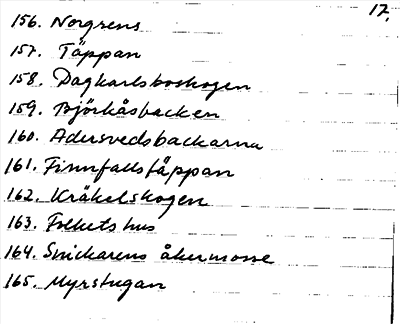 17.
156. Norgrens
157. Täppan
158. Dagkarlsboskogen
159. Björkåsbacken
160. Adersvedsbackarna
161. Finnfallstäppan
162. Kråkelskogen
163. Folkets hus
164. Snickarens åkermosse
165. Myrstugan